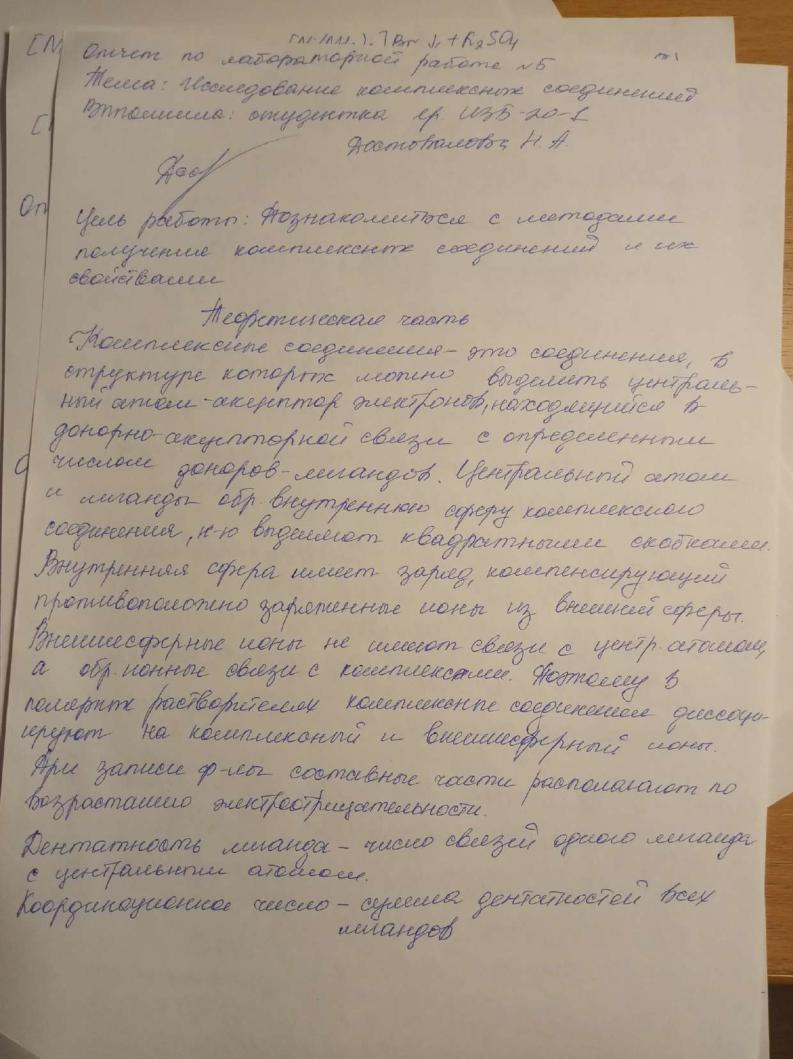 [N
+ K₂SO₄
Отчет по лабораторной работе №5
Тема: Исследование комплексных соединений
Выполнила: студентка гр. ИЗБ-20-1
Достовалова Н. А.
Цель работы: Познакомиться с методами
получения комплексных соединений и их
свойствами
Теоретическая часть
Комплексные соединения - это соединения, в
структуре которых можно выделить централь-
ный атом - акцептор электронов, находящийся в
донорно-акцепторной связи с определенным
числом доноров-лигандов. Центральный атом
и лиганды обр. внутреннюю сферу комплексного
соединения, к-ю выделяют квадратными скобками.
Внутренняя сфера имеет заряд, компенсирующий
противоположно заряженные ионы из внешней сферы.
Внешнесферные ионы не имеют связи с центр. атомом,
а обр. ионные связи с комплексами. Поэтому в
полярных растворителях комплексные соединения диссоци-
ируют на комплексный и внешнесферный ионы.
При записи ф-лы составные части располагают по
возрастанию электроотрицательности.
Дентатность лиганда - число связей одного лиганда
с центральным атомом.
Координационное число - сумма дентатностей всех
лигандов